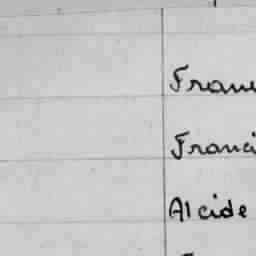 Franc
Franci
Alcide